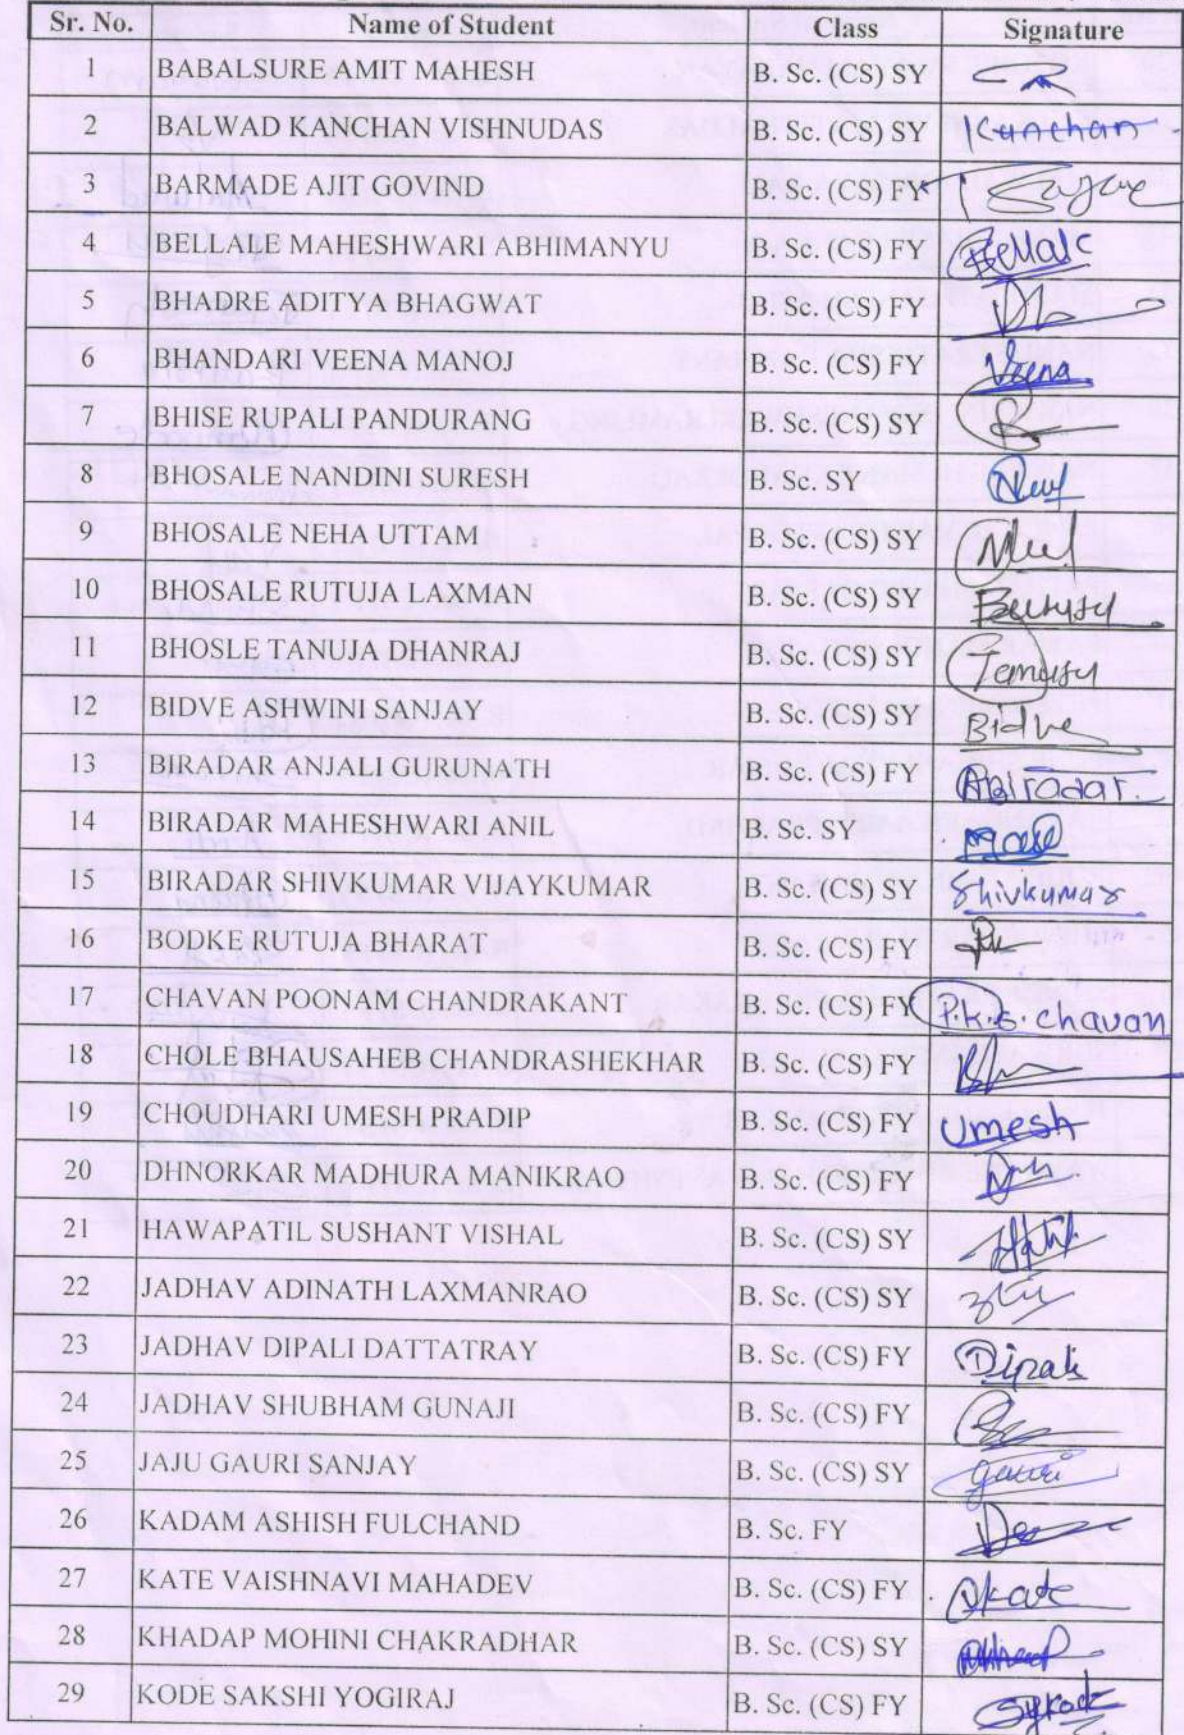 Sr. No. Name of Student Class Signature
1 BABALSURE AMIT MAHESH B. Sc. (CS) SY
2 BALWAD KANCHAN VISHNUDAS B. Sc. (CS) SY Kanchan
3 BARMADE AJIT GOVIND B. Sc. (CS) FY
4 BELLALE MAHESHWARI ABHIMANYU B. Sc. (CS) FY
5 BHADRE ADITYA BHAGWAT B. Sc. (CS) FY
6 BHANDARI VEENA MANOJ B. Sc. (CS) FY Veena
7 BHISE RUPALI PANDURANG B. Sc. (CS) SY
8 BHOSALE NANDINI SURESH B. Sc. SY
9 BHOSALE NEHA UTTAM B. Sc. (CS) SY
10 BHOSALE RUTUJA LAXMAN B. Sc. (CS) SY
11 BHOSLE TANUJA DHANRAJ B. Sc. (CS) SY
12 BIDVE ASHWINI SANJAY B. Sc. (CS) SY Bidve
13 BIRADAR ANJALI GURUNATH B. Sc. (CS) FY ABiradar.
14 BIRADAR MAHESHWARI ANIL B. Sc. SY
15 BIRADAR SHIVKUMAR VIJAYKUMAR B. Sc. (CS) SY Shivkumar
16 BODKE RUTUJA BHARAT B. Sc. (CS) FY
17 CHAVAN POONAM CHANDRAKANT B. Sc. (CS) FY P.K.S. Chavan
18 CHOLE BHAUSAHEB CHANDRASHEKHAR B. Sc. (CS) FY
19 CHOUDHARI UMESH PRADIP B. Sc. (CS) FY Umesh
20 DHNORKAR MADHURA MANIKRAO B. Sc. (CS) FY
21 HAWAPATIL SUSHANT VISHAL B. Sc. (CS) SY
22 JADHAV ADINATH LAXMANRAO B. Sc. (CS) SY
23 JADHAV DIPALI DATTATRAY B. Sc. (CS) FY Dipali
24 JADHAV SHUBHAM GUNAJI B. Sc. (CS) FY
25 JAJU GAURI SANJAY B. Sc. (CS) SY gauri
26 KADAM ASHISH FULCHAND B. Sc. FY
27 KATE VAISHNAVI MAHADEV B. Sc. (CS) FY
28 KHADAP MOHINI CHAKRADHAR B. Sc. (CS) SY
29 KODE SAKSHI YOGIRAJ B. Sc. (CS) FY SYKode